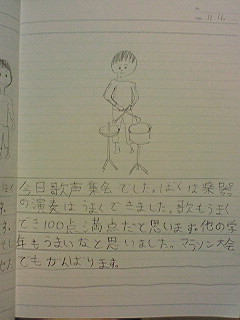 11 16
今日歌声集会でした。ぼくは楽器
の演奏はうまくできました。歌もうまく
でき100点満点だと思います。他の学
年もうまいなと思いました。マラソン大会
でもがんばります。